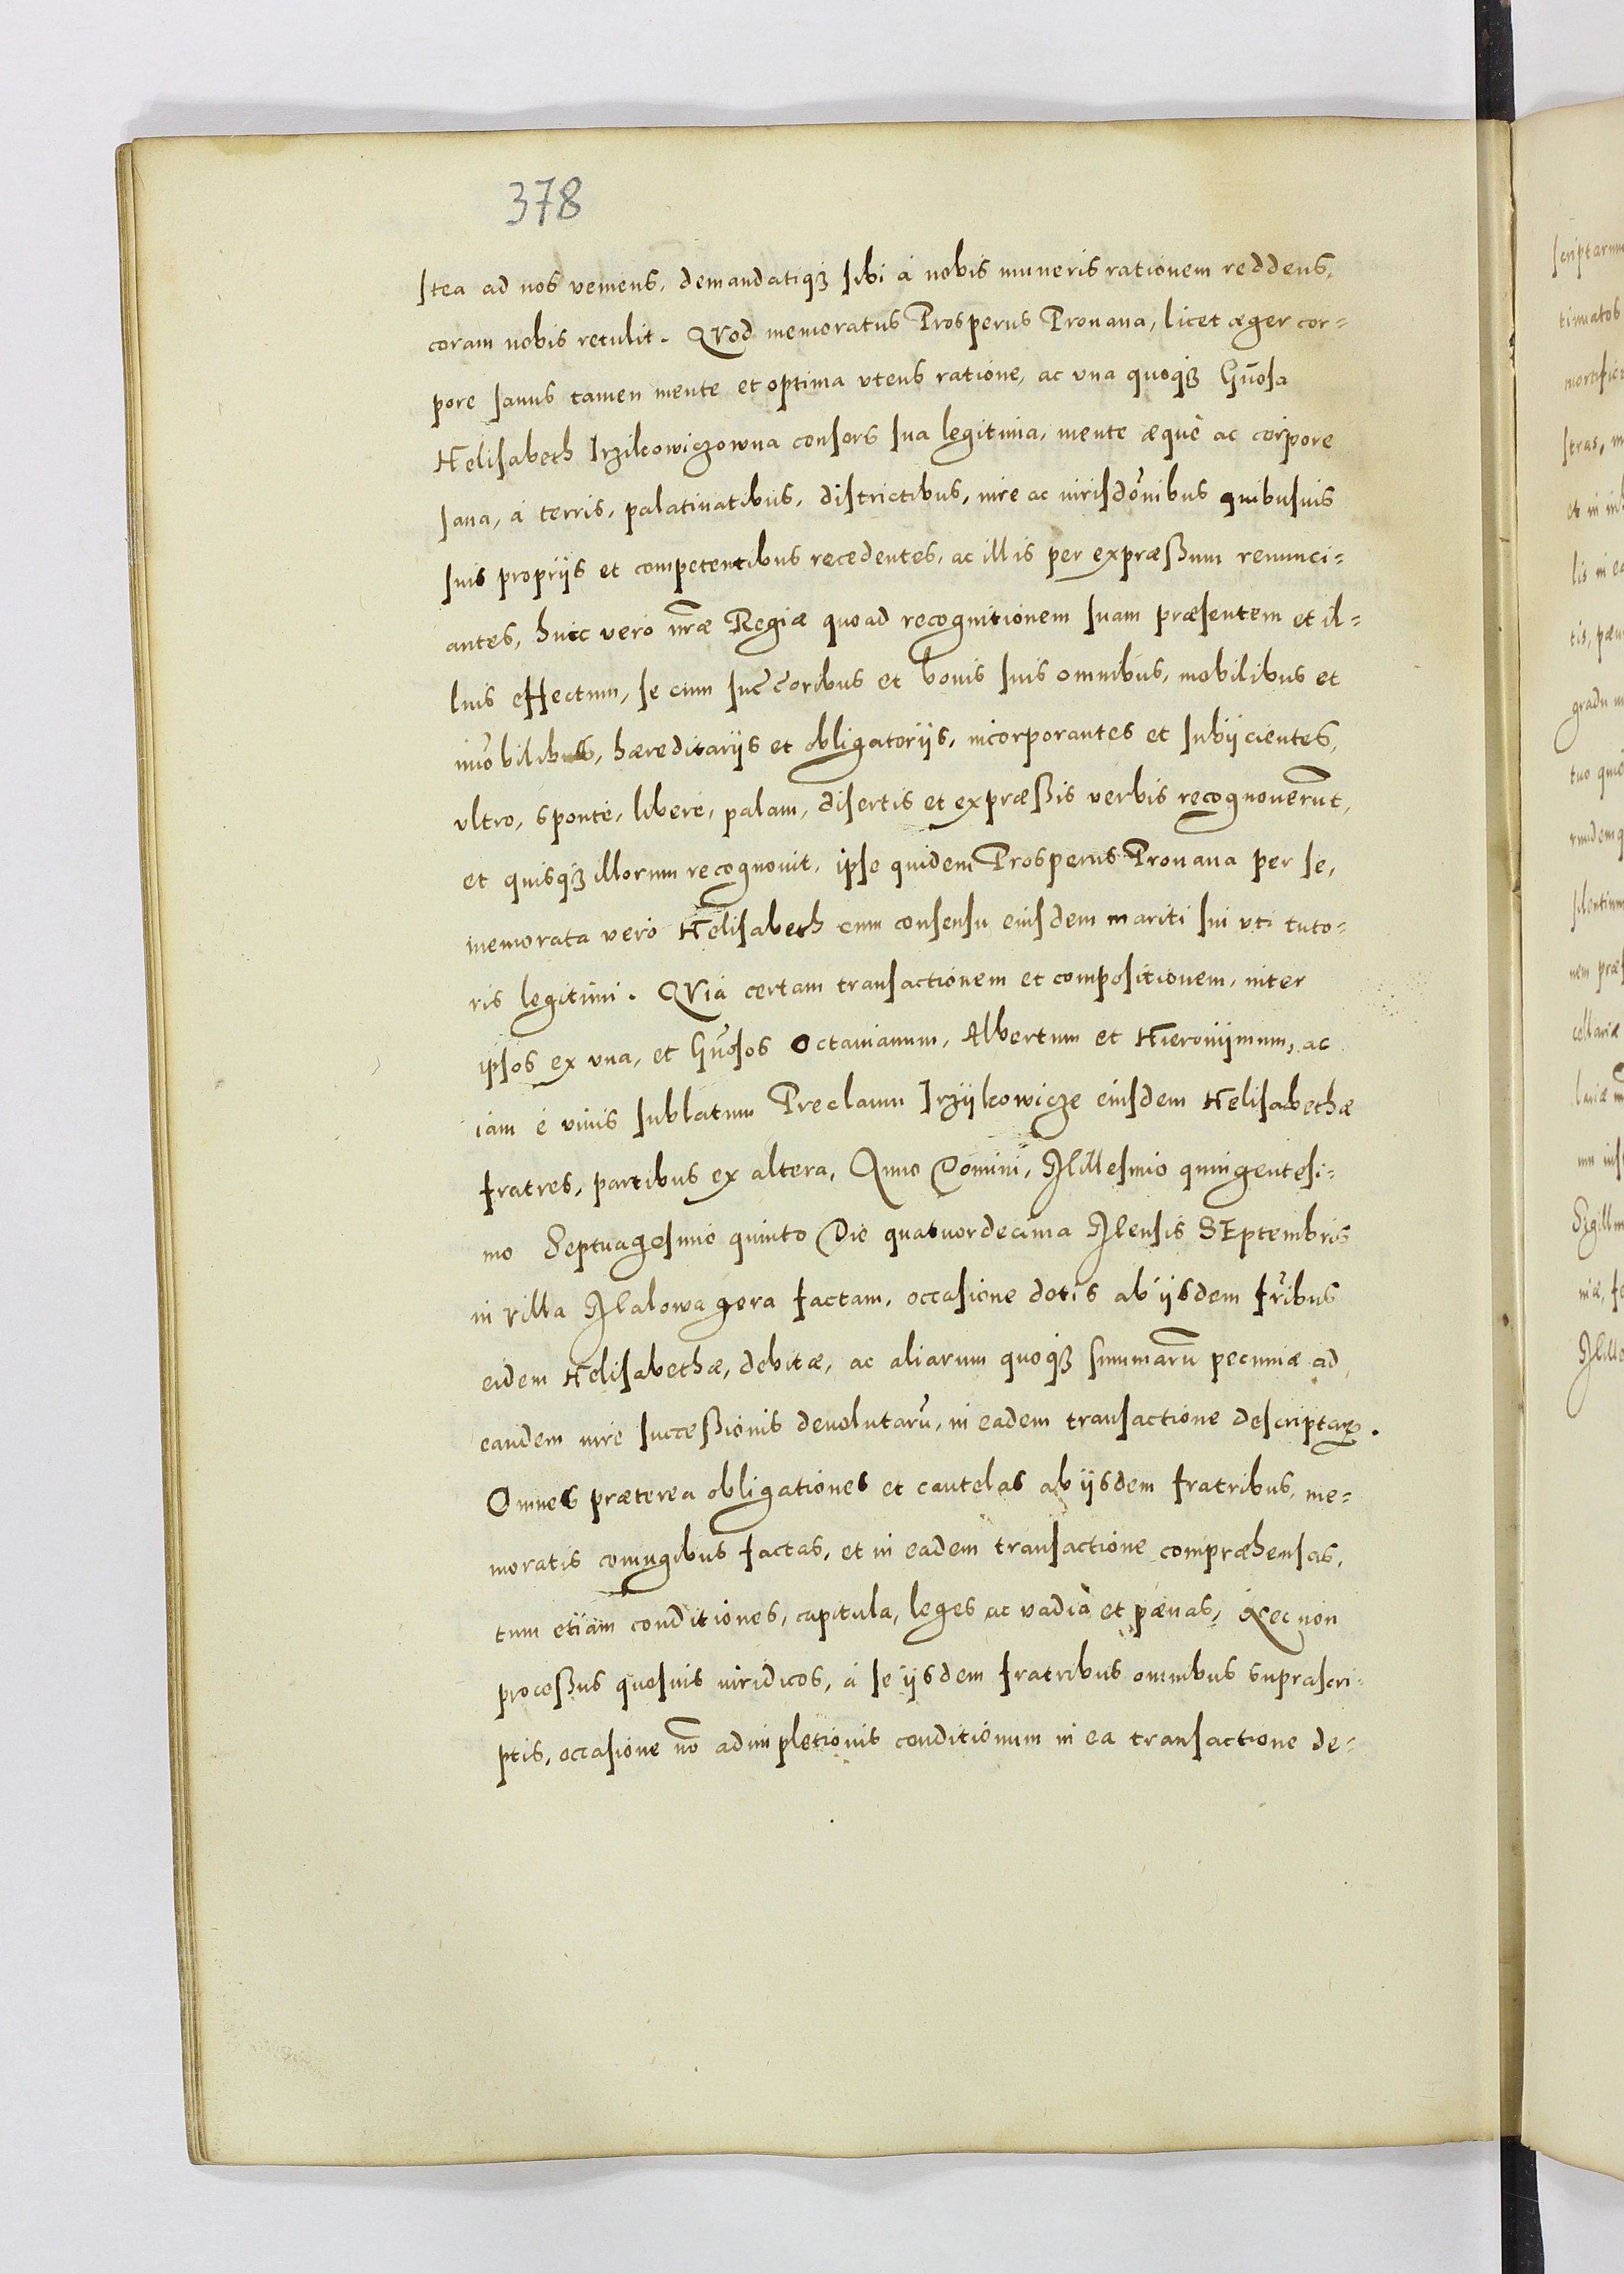 378
stea ad nos veniens, demandatiq3 sibi á nobis muneris rationem reddens,
coram nobis retulit. QVod memoratus Prosperus Prouana, licet æger cor=
pore sanus tamen mente et optima vtens ratione, ac vna quoq3 Gn̄osa
Helisabeth Irzikowiczowna consors sua legitima, mente æquè ac corpore
sana, á terris, palatinatibus, districtibus, iure ac iurisdōnibus quibusuis
suis proprijs et competentibus recedentes, ac illis per expræßum renunci=
antes, huic vero nr̄æ Regiæ quoad recognitionem suam præsentem et il=
lius effectum, se cum succ̄oribus et bonis suis omnibus, mobilibus et
im̄obilibus, hæreditarijs et obligatorijs, incorporantes et subijcientes,
vltro, sponte, libere, palam, disertis et expræßis verbis recognouerunt,
et quisq3 illorum recognouit, ipse quidem Prosperus Prouana per se,
memorata vero Helisabeth cum consensu eiusdem mariti sui vti tuto=
ris legitimi. QVia certam transactionem et compositionem, inter
ipsos ex vna, et Gn̄osos Octauianum, Albertum et Hieronijmum, ac
iam é viuis sublatum Preclaum Irzijkowicze eiusdem Helisabethæ
fratres, partibus ex altera, Anno Domini, Millesimo quingentesi=
mo Septuagesimo quinto Die quatuordecima Mensis SEptembris
in villa Malowagora factam, occasione dotis ab ijsdem fr̄ibus
eidem Helisabethæ, debitæ, ac aliarum quoq3 summarū pecuniæ ad
eandem iure succeßionis deuolutarū, in eadem transactione descriptaꝝ.
Omnes præterea obligationes et cautelas ab ijsdem fratribus, me=
moratis coniugibus factas, et in eadem transactione compræhensas,
tum etiam conditiones, capitula, leges ac vadia et pænas, Nec non
proceßus quosuis iuridicos, á se ijsdem fratribus omnibus suprascri=
ptis, occasione nō adimpletionis conditionum in ea transactione de=